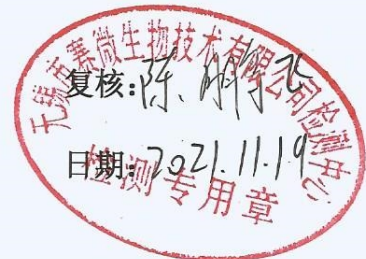 无锡市赛微生物技术有限公司检测中心
复核:陈
日期:2021.11.19
检测专用章